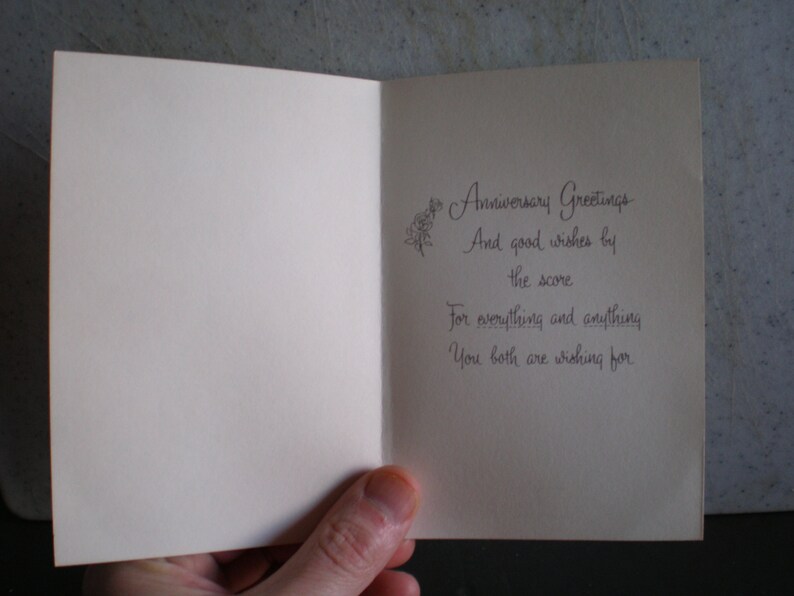 Anniversary Greetings
And good wishes by
the score
For everything and anything
You both are wishing for